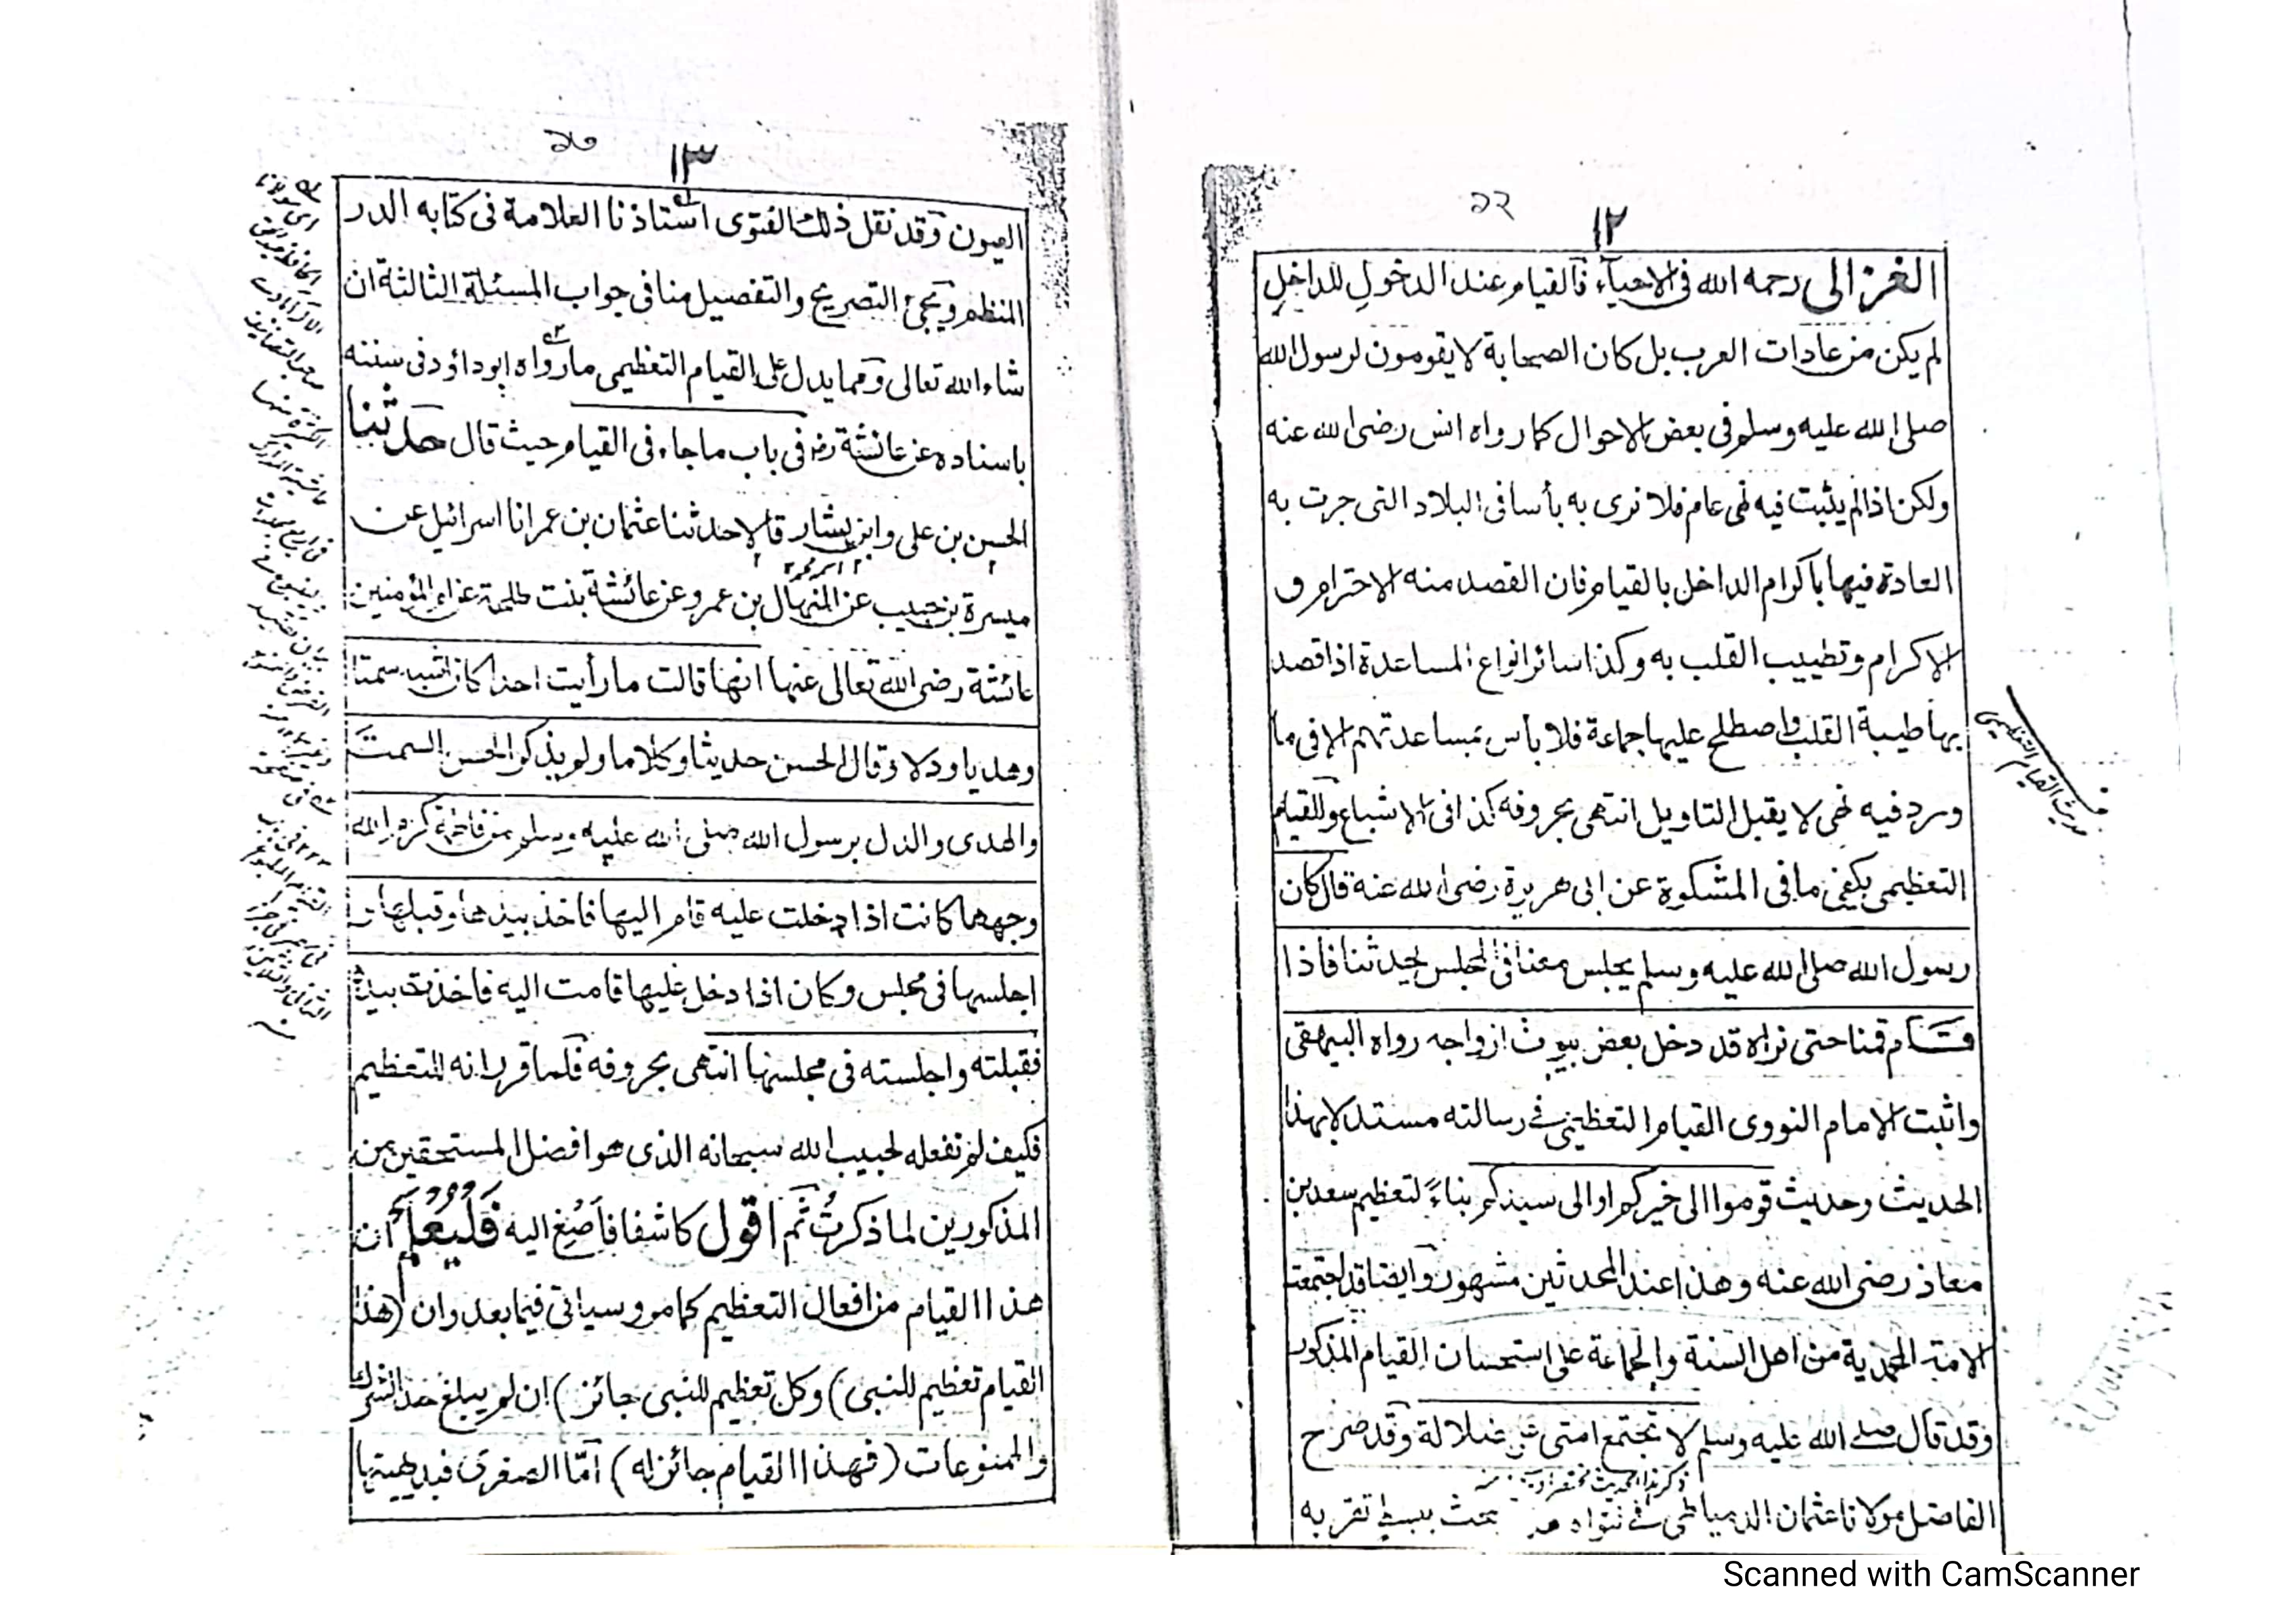 ১২
١٢
الغزالى رحمه الله فى الاحياء فالقيام عند الدخول للداخل
لم يكن من عادات العرب بل كان الصحابة لا يقومون لرسول الله
صلى الله عليه وسلم فى بعض الاحوال كما رواه انس رضى الله عنه
ولكن اذا لم يثبت فيه نهى عام فلا نرى به بأسا فى البلاد التى جرت به
العادة فيها باكرام الداخل بالقيام فان القصد منه الاحترام و
الاكرام وتطييب القلب به وكذا سائر انواع المساعدة اذا قصد
بها طيبة القلب واصطلح عليها جماعة فلا بأس بمساعدتهم الا فى ما
ورد فيه نهى لا يقبل التاويل انتهى بحروفه كذا فى الاشباع وللقيام
التعظيمى يكفى ما فى المشكوة عن ابى هريرة رضى الله عنه قال كان
رسول الله صلى الله عليه وسلم يجلس معنا فى المجلس يحدثنا فاذا
قام قمنا حتى نراه قد دخل بعض بيوت ازواجه رواه البيهقى
واثبت الامام النووى القيام التعظيمى فے رسالته مستدلا بهذا
الحديث وحديث قوموا الى خيركم او الى سيدكم بناءً لتعظيم سعد بن
معاذ رضى الله عنه وهذا عند المحدثين مشهور وايضا قد اجتمعت
الامة المحمدية من اهل السنة والجماعة على استحسان القيام المذكور
وقد قال صلے الله عليه وسلم لا تجتمع امتى على ضلالة وقد صرح
الفاضل مولانا عثمان الدمياطى فے فتواه بحث ببسط تقر به
حديث القيام التعظيمى
১৩
١٣
العيون وقد نقل ذلك الفتوى استاذنا العلامة فى كتابه الدر
المنظم ويجئ التصريح والتفصيل منا فى جواب المسئلة الثالثة ان
شاء الله تعالى ومما يدل على القيام التعظيمى ما رواه ابو داؤد فى سننه
باسناده عن عائشة رضـ فى باب ما جاء فى القيام حيث قال حدثنا
الحسن بن على وابن بشار قالا حدثنا عثمان بن عمر انا اسرائيل عن
ميسرة بن حبيب عن المنهال بن عمرو عن عائشة بنت طلحة عن ام المؤمنين
عائشة رضى الله تعالى عنها انها قالت ما رأيت احدا كان اشبه سمتا
وهديا ودلا وقال الحسن حديثا وكلاما ولم يذكر الحسن السمت
والهدى والدل برسول الله صلى الله عليه وسلم من فاطمة كرم الله
وجهها كانت اذا دخلت عليه قام اليها فاخذ بيدها وقبلها و
اجلسها فى مجلس وكان اذا دخل عليها قامت اليه فاخذت بيده
فقبلته واجلسته فى مجلسها انتهى بحروفه فلما قرر انه للتعظيم
فكيف لم نفعله لحبيب الله سبحانه الذى هو افضل المستحقين من
المذكورين لما ذكرتُ ثم اقول كاشفا فأصغ اليه فَليُعْلم ان
هذا القيام من افعال التعظيم كما مر وسياتى فيما بعد وان (هذا
القيام تعظيم للنبى) وكل تعظيم للنبى جائز) ان لم يبلغ حد الشرك
والممنوعات (فهذا القيام جائز له) أمّا الصغرى فبديهيتها
Scanned with CamScanner